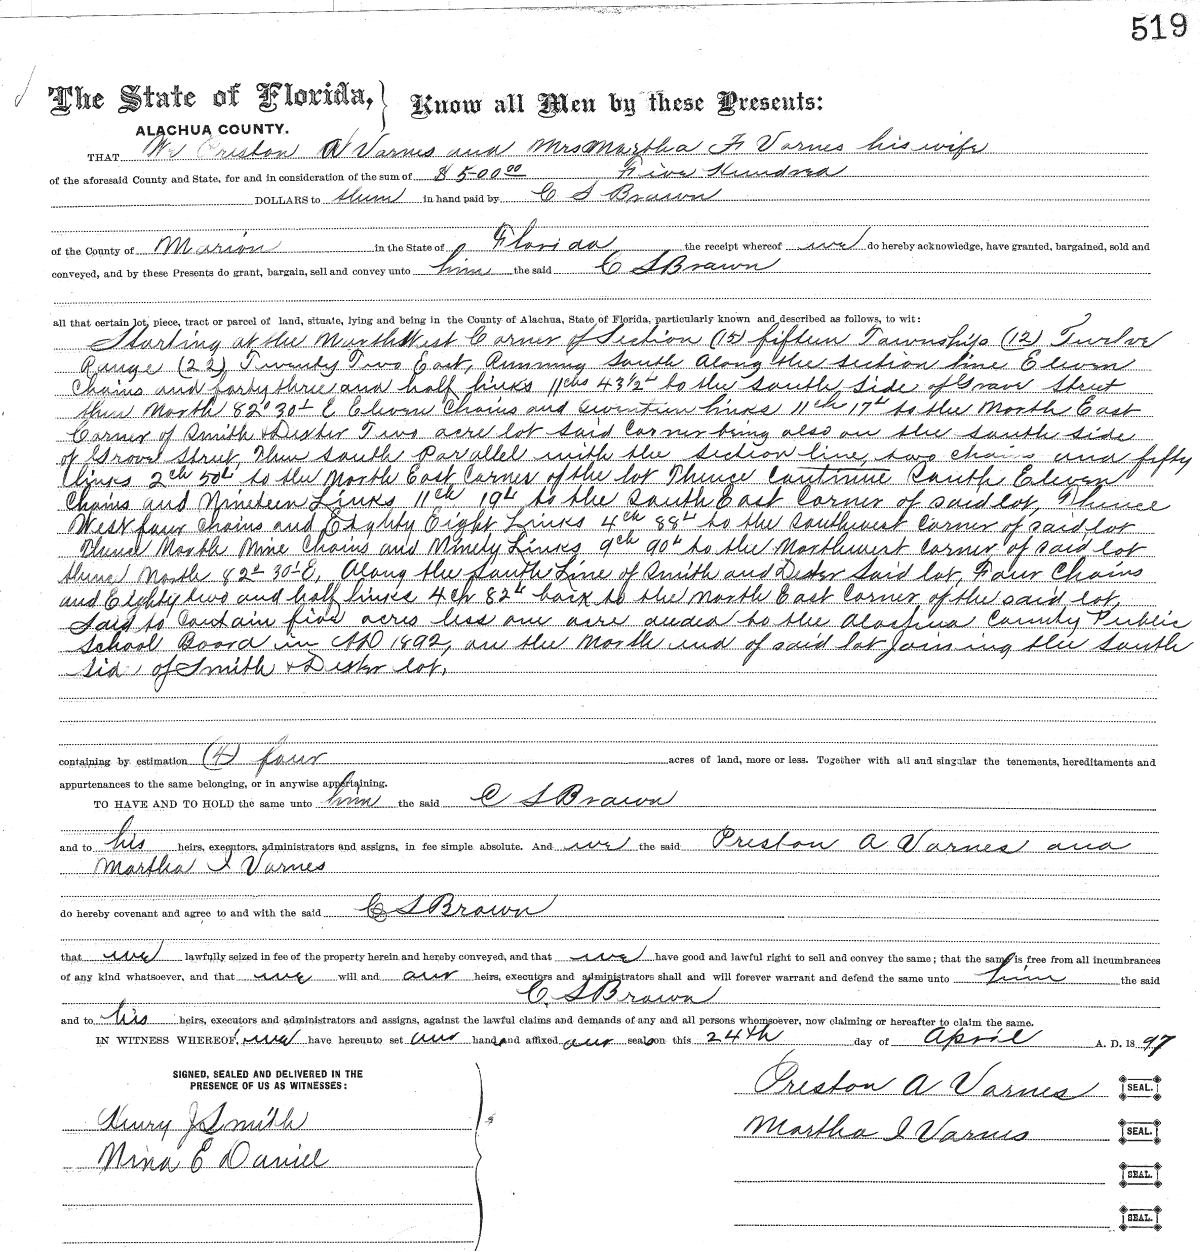 519
The State of Florida, } Know all Men by these Presents:
ALACHUA COUNTY.
THAT We Preston A Varnes and Mrs Martha F Varnes his wife
of the aforesaid County and State, for and in consideration of the sum of $500 00 Five Hundred
DOLLARS to them in hand paid by C S Brown
of the County of Marion in the State of Florida the receipt whereof we do hereby acknowledge, have granted, bargained, sold and
conveyed, and by these Presents do grant, bargain, sell and convey unto him the said C S Brown
all that certain lot, piece, tract or parcel of land, situate, lying and being in the County of Alachua, State of Florida, particularly known and described as follows, to wit:
Starting at the North West Corner of Section (15) fifteen Township (12) Twelve
Range (22) Twenty Two East, Running South along the section line Eleven
Chains and forty three and half links 11chs 43½L to the South Side of Grove Street
thence North 82° 30L E Eleven Chains and seventeen links 11ch 17L to the North East
Corner of Smith & Dexter Two acre lot said Corner being also on the south side
of Grove Street, Thence South Parallel with the section line, two chains and fifty
links 2ch 50L to the North East Corner of the lot Thence Continue South Eleven
Chains and Nineteen Links 11ch 19L to the South East Corner of said lot, Thence
West four Chains and Eighty Eight Links 4ch 88L to the Southwest Corner of said lot
Thence North Nine Chains and Ninety Links 9ch 90L to the Northwest Corner of said lot
thence North 82° 30L E, Along the South Line of Smith and Dexter Said lot, Four Chains
and Eighty two and half links 4ch 82L back to the North East Corner of the said lot,
Said to Contain five acres less one acre deeded to the Alachua County Public
School Board in AD 1892, on the North end of said lot joining the South
Side of Smith & Dexter lot,
containing by estimation (4) four acres of land, more or less. Together with all and singular the tenements, hereditaments and
appurtenances to the same belonging, or in anywise appertaining.
TO HAVE AND TO HOLD the same unto him the said C S Brown
and to his heirs, executors, administrators and assigns, in fee simple absolute. And we the said Preston A Varnes and
Martha I Varnes
do hereby covenant and agree to and with the said C S Brown
that we lawfully seized in fee of the property herein and hereby conveyed, and that we have good and lawful right to sell and convey the same; that the same is free from all incumbrances
of any kind whatsoever, and that we will and our heirs, executors and administrators shall and will forever warrant and defend the same unto him the said
C. S Brown
and to his heirs, executors and administrators and assigns, against the lawful claims and demands of any and all persons whomsoever, now claiming or hereafter to claim the same.
IN WITNESS WHEREOF, we have hereunto set our hand and affixed our seals on this 24th day of April A. D. 1897
SIGNED, SEALED AND DELIVERED IN THE
PRESENCE OF US AS WITNESSES:
Henry J Smith
Nina E Daniel
Preston A Varnes SEAL.
Martha I Varnes SEAL.
SEAL.
SEAL.